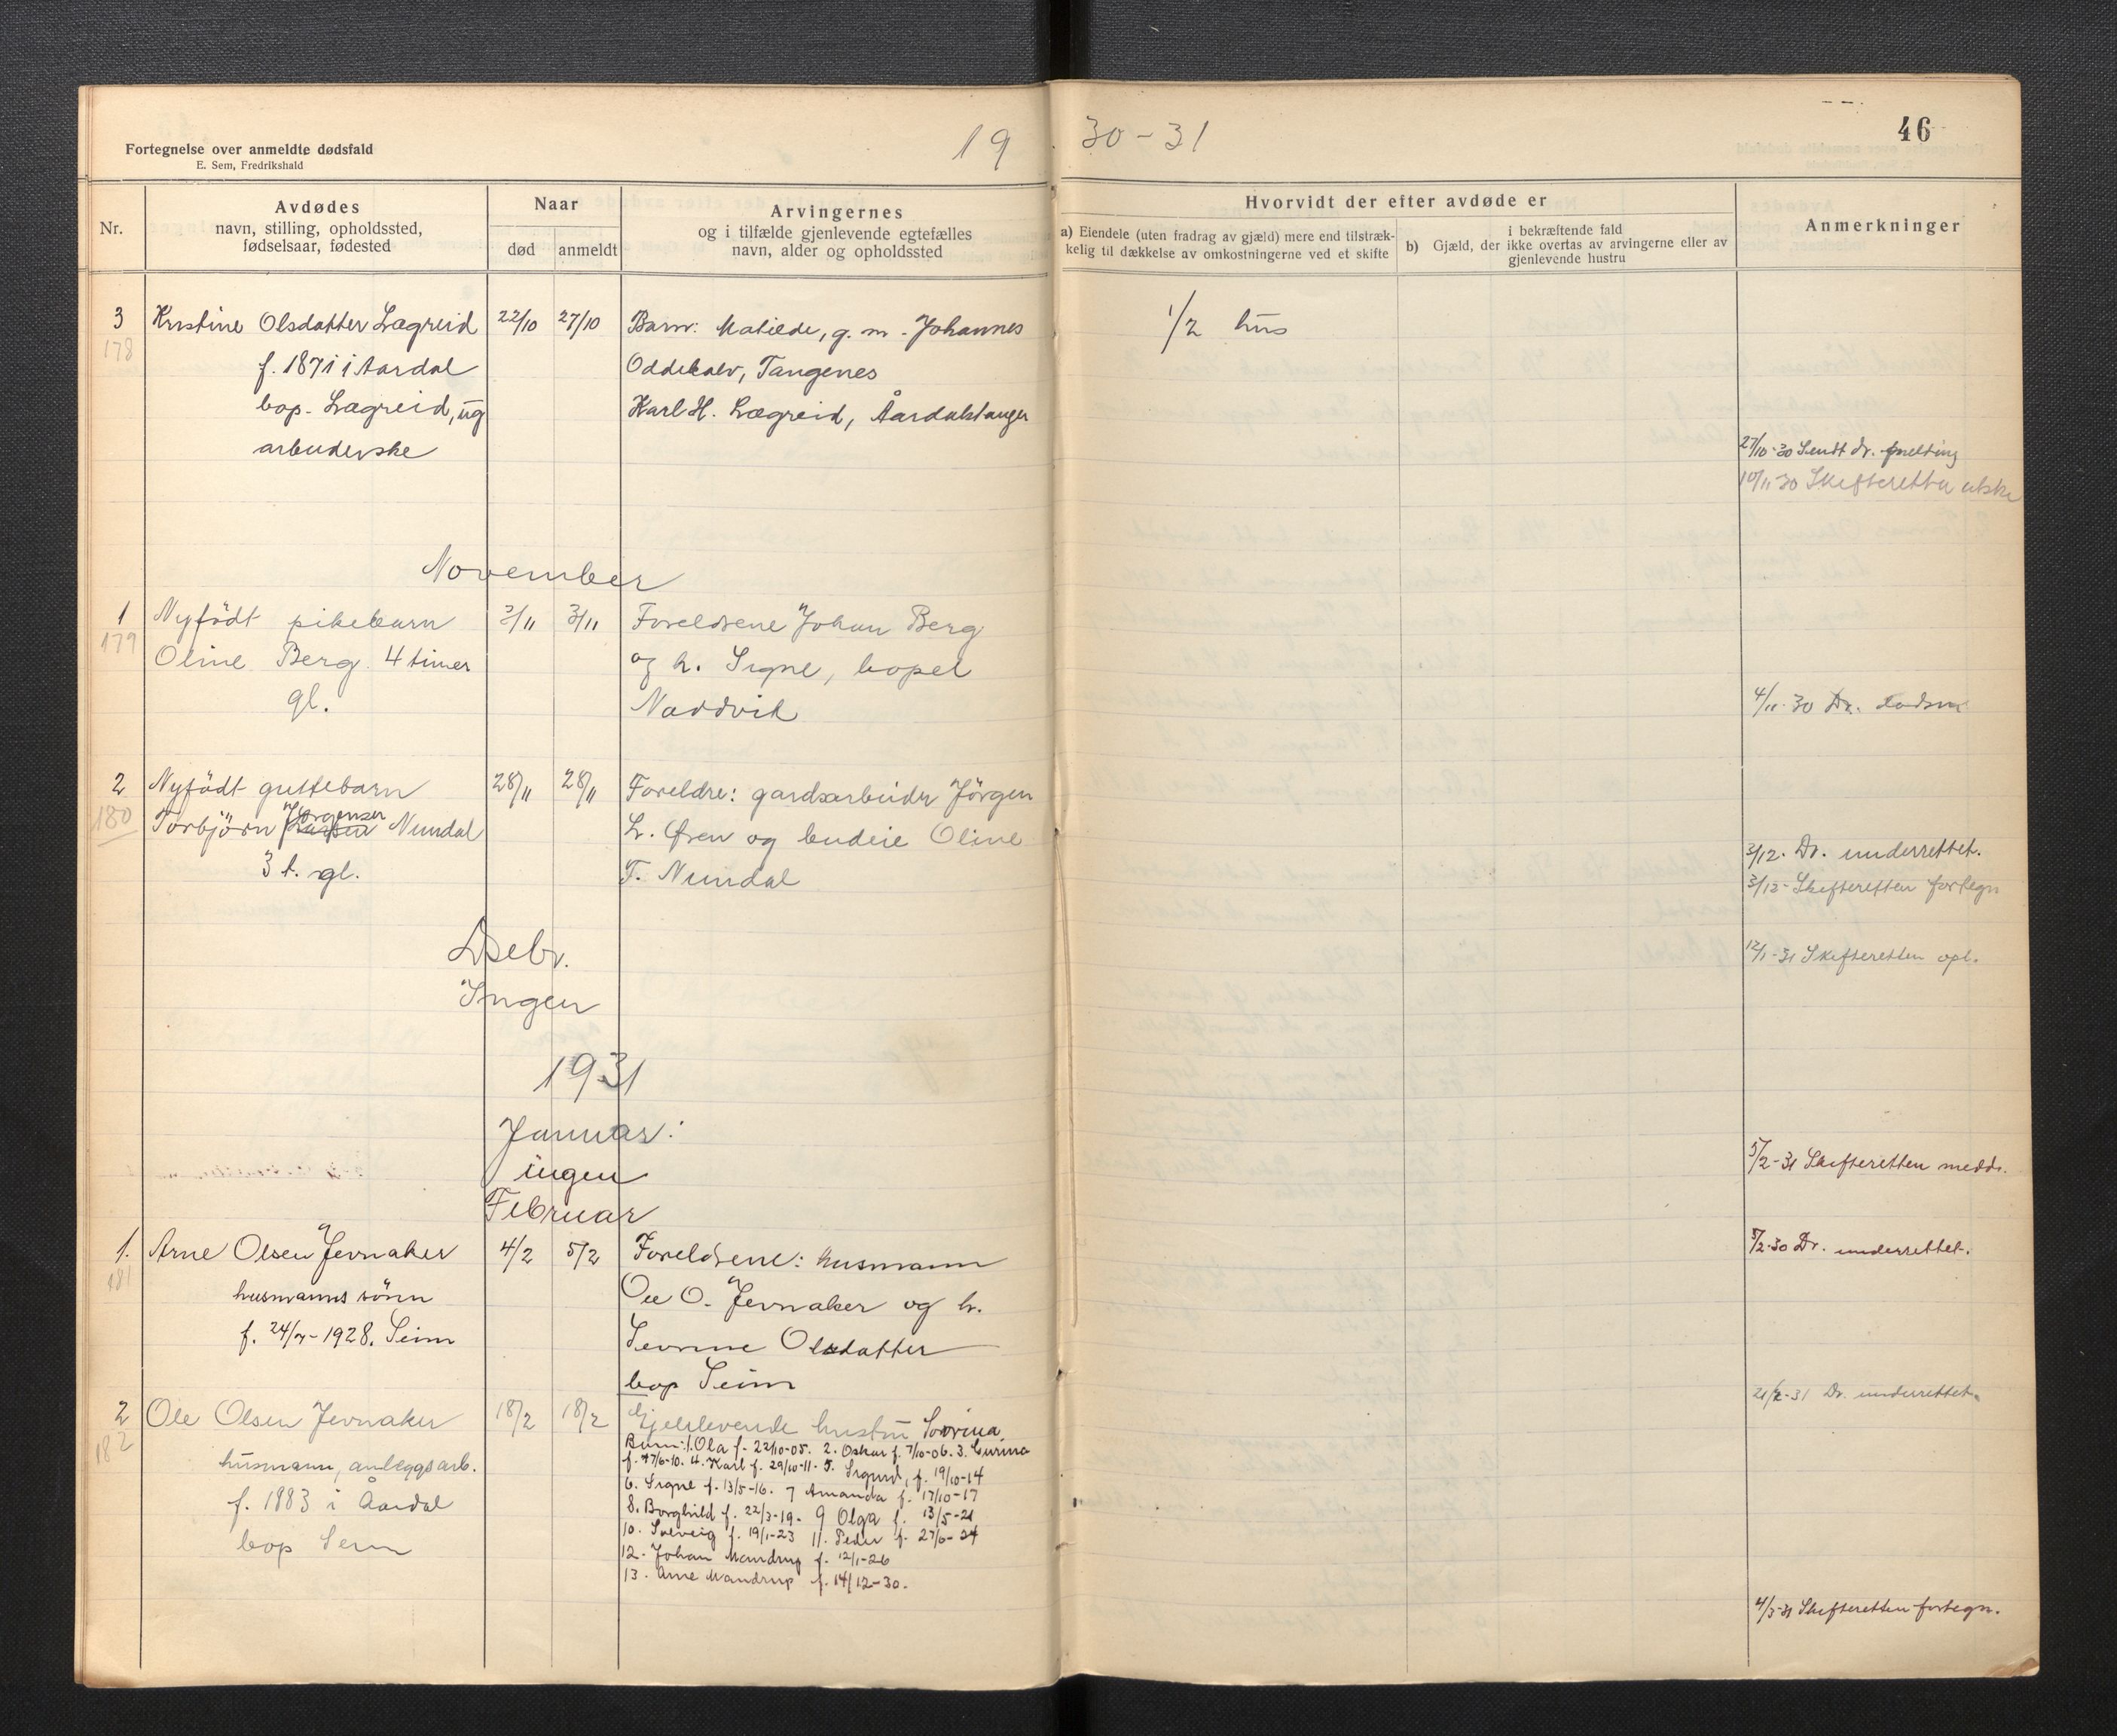 Fortegnelse over anmeldte dødsfald
E. Sem, Fredrikshald
19 30-31
46
Nr.
Avdødes
navn, stilling, opholdssted,
fødselsaar, fødested
Naar
død
anmeldt
Arvingernes
og i tilfælde gjenlevende egtefælles
navn, alder og opholdssted
Hvorvidt der efter avdøde er
a) Eiendele (uten fradrag av gjæld) mere end tilstræk-
kelig til dækkelse av omkostningerne ved et skifte
i bekræftende fald
b) Gjæld, der ikke overtas av arvingerne eller av
gjenlevende hustru
Anmerkninger
3 Kristine Olsdatter Lægreid 22/10 27/10 Barn: Matilde, g. m. Johannes 1/2 hus
178
f. 1871 i Aardal Tangenes
bop. Lægreid, ug Karl H. Lægreid, Åardalstangen
arbeiderske
27/10-30 Sendt dr. melding
10/11 30 Skifteretten
November
1 Nyfödt pikebarn 3/11 3/11 Foreldrene Johan Berg
179 Oline Berg 4 timer og h. Signe, bopel
gl. Naddvik
4/11-30 Dr.
2 Nyfödt guttebarn 28/11 28/11 Foreldre: gardsarbeider Jörgen
180 Torbjörn Jörgensen Nundal L. Øren og budeie Oline
3 t. gl. T. Nundal
3/12. Dr. underrettet.
3/12- Skifteretten fortegn
Dsebr.
12/1-31 Skifteretten opl.
Ingen
1931
Januar:
ingen
5/2-31 Skifteretten medd.
Februar
1. Arne Olsen Jevnaker 4/2 5/2 Foreldrene: husmann
5/2-30 Dr. underrettet.
181
husmanns sönn Ole O. Jevnaker og h.
1928. Seim Olsdatter
bop Seim
21/2-31 Dr. underrettet.
2 Ole Olsen Jevnaker 18/2 18/2 Gjenlevende hustru
182
husmann, anleggsarb.
f. 1883 i Åardal
bop Seim
Barn: 1. Ola f. 22/10-05. 2. Oskar f. 7/10-06. 3.
4. Karl f. 29/10-11. 5. Sigurd, f. 19/10-14
6. Signe f. 13/5-16. 7 Amanda f. 17/10-17
8. Borghild f. 22/3-19. 9 Olga f. 13/5-21
10. Solveig f. 19/1-23 11. Peder f. 27/6-24
12. Johan Mandrup f. 12/1-26
13. Arne Mandrup f. 14/12-30.
4/3-31 Skifteretten fortegn.